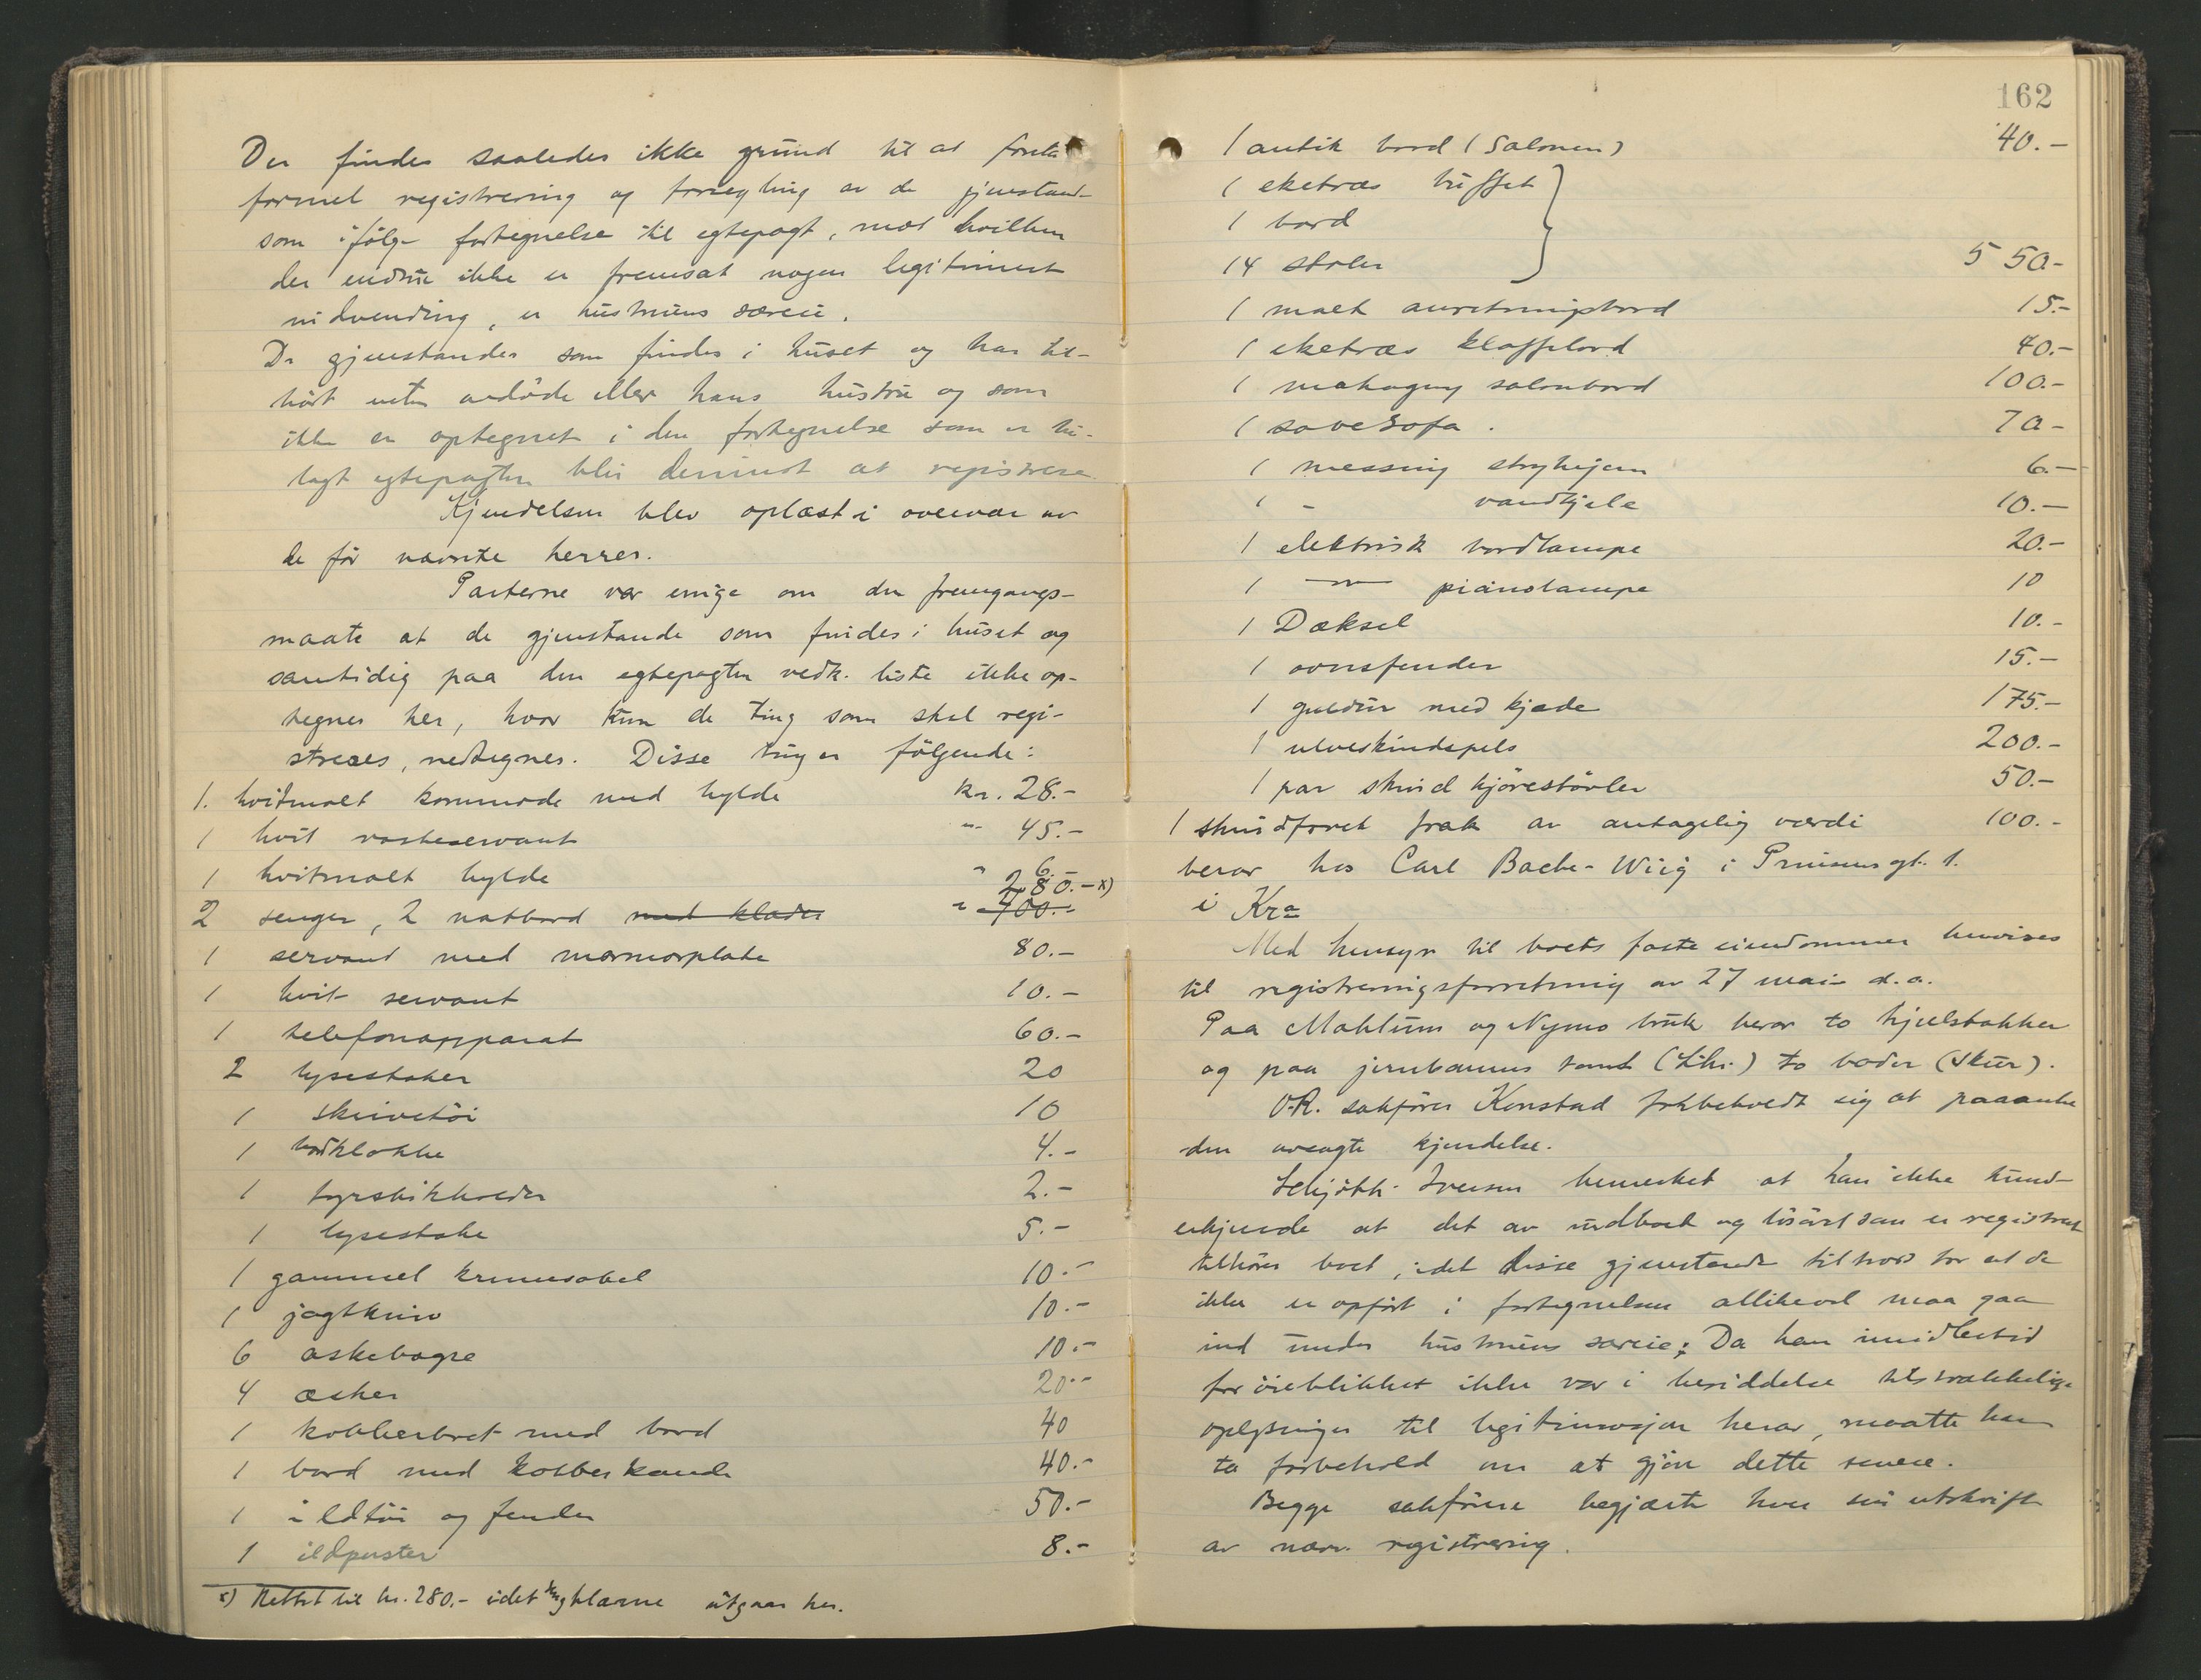 Der findes saaledes ikke grund til at foreta
formel registrering og forsegling av de gjenstand-
som ifølge fortegnelse til egtepagt, mot hvilken
der endnu ikke er fremsat nogen legitimert
indvending, er hustruens særeie.
De gjenstander som findes i huset og har til-
hørt enten avdøde eller hans hustru og som
ikke er optegnet i den fortegnelse som er ve-
lagt egtepagten blir derimot at registrere.
Kjendelsen blev oplæst i overvær av
de før nævnte herrer.
Parterne var enige om den fremgangs-
maate at de gjenstande som findes i huset og
samtidig paa den egtepagten vedk. liste ikke op-
tegnes her, hvor kun de ting som skal regi-
streres, nedtegnes. Disse ting er følgende:
1. hvitmalt kommode med hylde kr. 28.-
1 hvit vaskeservant " 45.-
1 hvitmalt hylde " 6.-
2 senger, 2 natbord med klæder " 400.- 280.- x)
1 servant med marmorplate 80.-
1 hvit servant 10.-
1 telefonapparat 60.-
2 lysestaker 20
1 skrivetøi 10
1 bordklokke 4.-
1 fyrstikholder 2.-
1 lysestake 5.-
1 gammel krumsabel 10.-
1 jagtkniv 10.-
6 askebægre 10.-
4 æsker 20.-
1 kobberbret med bord 40
1 bord med kobberkande 40.-
1 ildtøi og fender 50.-
1 ildpuster 8.-
x) Rettet til kr. 280.- idet sengklærne utgaar her.
162
1 antik bord (Salonen) 40.-
1 eketræs buffet
1 bord
14 stoler 550-
1 malt anretningsbord 15.-
1 eketræs klaffebord 40.-
1 mahagny salonbord 100.-
1 sovesofa. 70-
1 messing strykejern 6.-
1 - vandkjele 10.-
1 elektrisk bordlampe 20.-
1 —"— pianolampe 10
1 Dæksel 10.-
1 ovnsfender 15.-
1 guldur med kjæde 175.-
1 ulveskindspels 200.-
1 par skind kjørestøvler 50.-
1 skindforet frak av antagelig værdi 100.-
beror hos Carl Bache-Wiig i Prinsensgt. 1.
i Kra
Med hensyn til boets faste eiendommer henvises
til registreringsforretning av 27 mai d.a.
Paa Mahlum og Nymo bruk beror to hjulstokker
og paa jernbanens tomt (Lhr.) to boder (skur).
O.R. sakfører Konstad forbeholdt sig at paaanke
den avsagte kjendelse.
Schjøth Iversen bemerket at han ikke kunde
erkjende at det av indboet og løsøre som er registrert
tilhører boet, idet disse gjenstande tiltrods for at de
ikke er opført i fortegnelsen allikevel maa gaa
ind under hustruens særeie; Da han imidlertid
for øieblikket ikke var i besiddelse tilstrækkelige
oplysninger til legitimasjon herav, maatte han
ta forbehold om at gjøre dette senere.
Begge sakførere begjærte hver sin utskrift
av nærv. registrering.